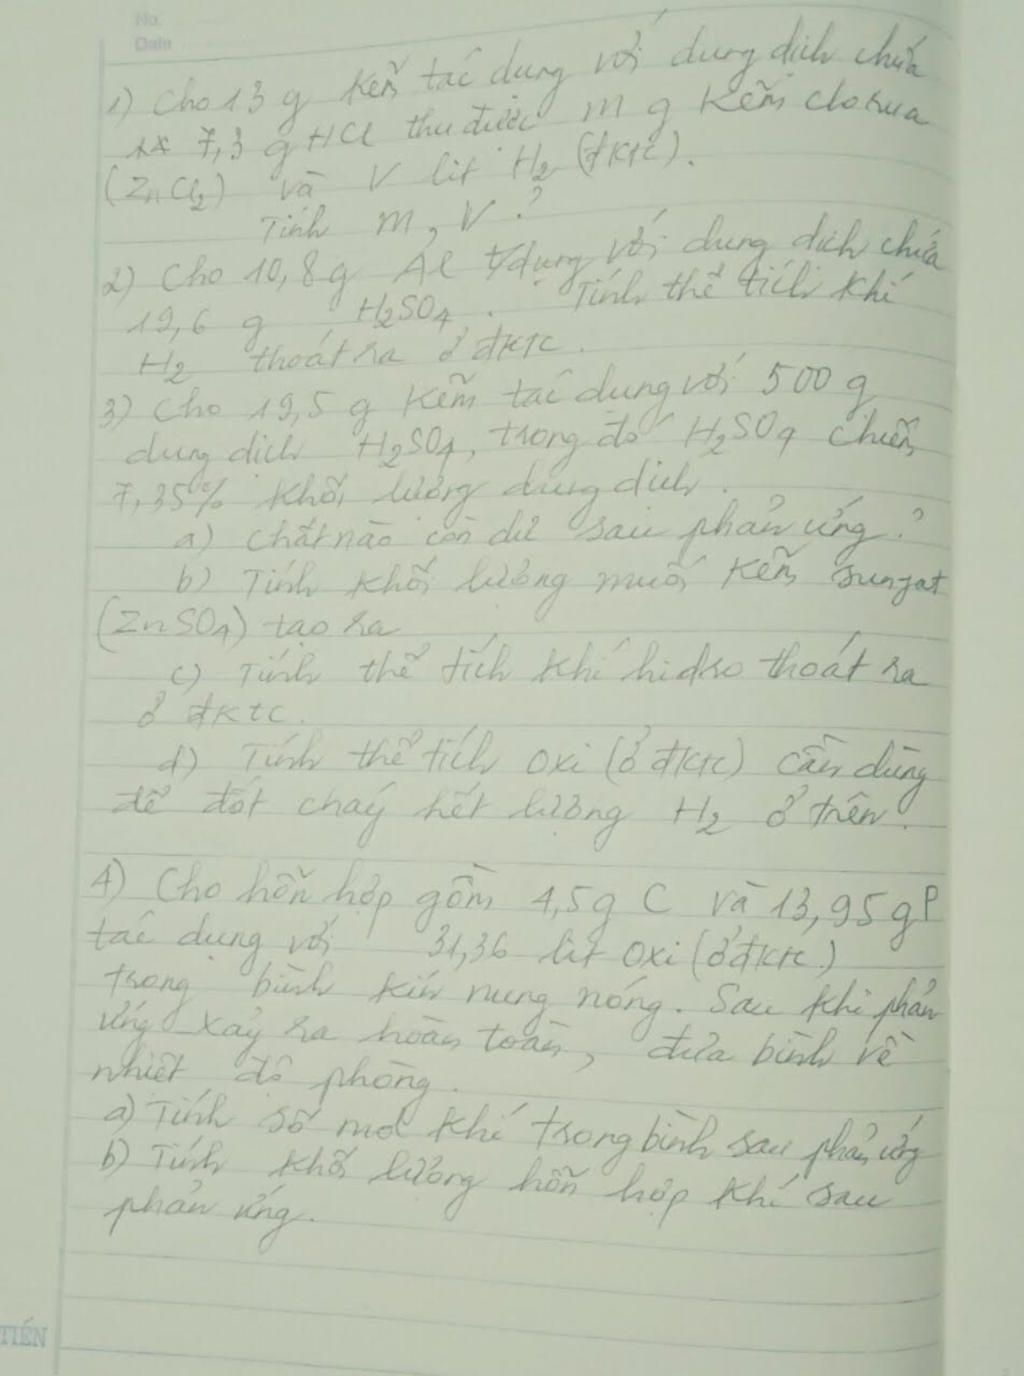 No.
Date
1) Cho 13 g Kẽm tác dụng với dung dịch chứa
7,3 g HCl thu được m g Kẽm clorua
(ZnCl2) và V lít H2 (đktc).
Tính m, V ?
2) Cho 10,8g Al t/dụng với dung dịch chứa
19,6 g H2SO4. Tính thể tích khí
H2 thoát ra ở đktc.
3) Cho 19,5 g Kẽm tác dụng với 500 g
dung dịch H2SO4, trong đó H2SO4 chiếm
7,35% khối lượng dung dịch.
a) chất nào còn dư sau phản ứng ?
b) Tính khối lượng muối Kẽm sunfat
(ZnSO4) tạo ra
c) Tính thể tích khí hiđro thoát ra
ở đktc.
d) Tính thể tích oxi (ở đktc) cần dùng
để đốt cháy hết lượng H2 ở trên.
4) Cho hỗn hợp gồm 4,5g C và 13,95g P
tác dụng với 31,36 lít oxi (ở đktc)
trong bình kín nung nóng. Sau khi phản
ứng xảy ra hoàn toàn, đưa bình về
nhiệt độ phòng.
a) Tính số mol khí trong bình sau phản ứng
b) Tính khối lượng hỗn hợp khí sau
phản ứng.
TIẾN